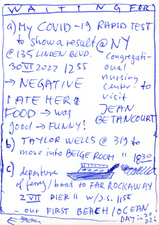 WAITING FOR
a) MY COVID-19 RAPID TEST
to show a result @ NY
@ 135 LINDEN BLVD congregati-
30 VII 2022 1255 onal
nursing
→ NEGATIVE center to
I ATE HER visit
FOOD → was JEAN
good → FUNNY! BETANCOURT
b) TAYLOR WELLS @ 319 to
move into BEIGE ROOM 1830
c) departure
of ferry/boat to FAR ROCKAWAY
2 VII PIER 11 W/O.S. 1155
our FIRST BEACH/OCEAN
DAY in